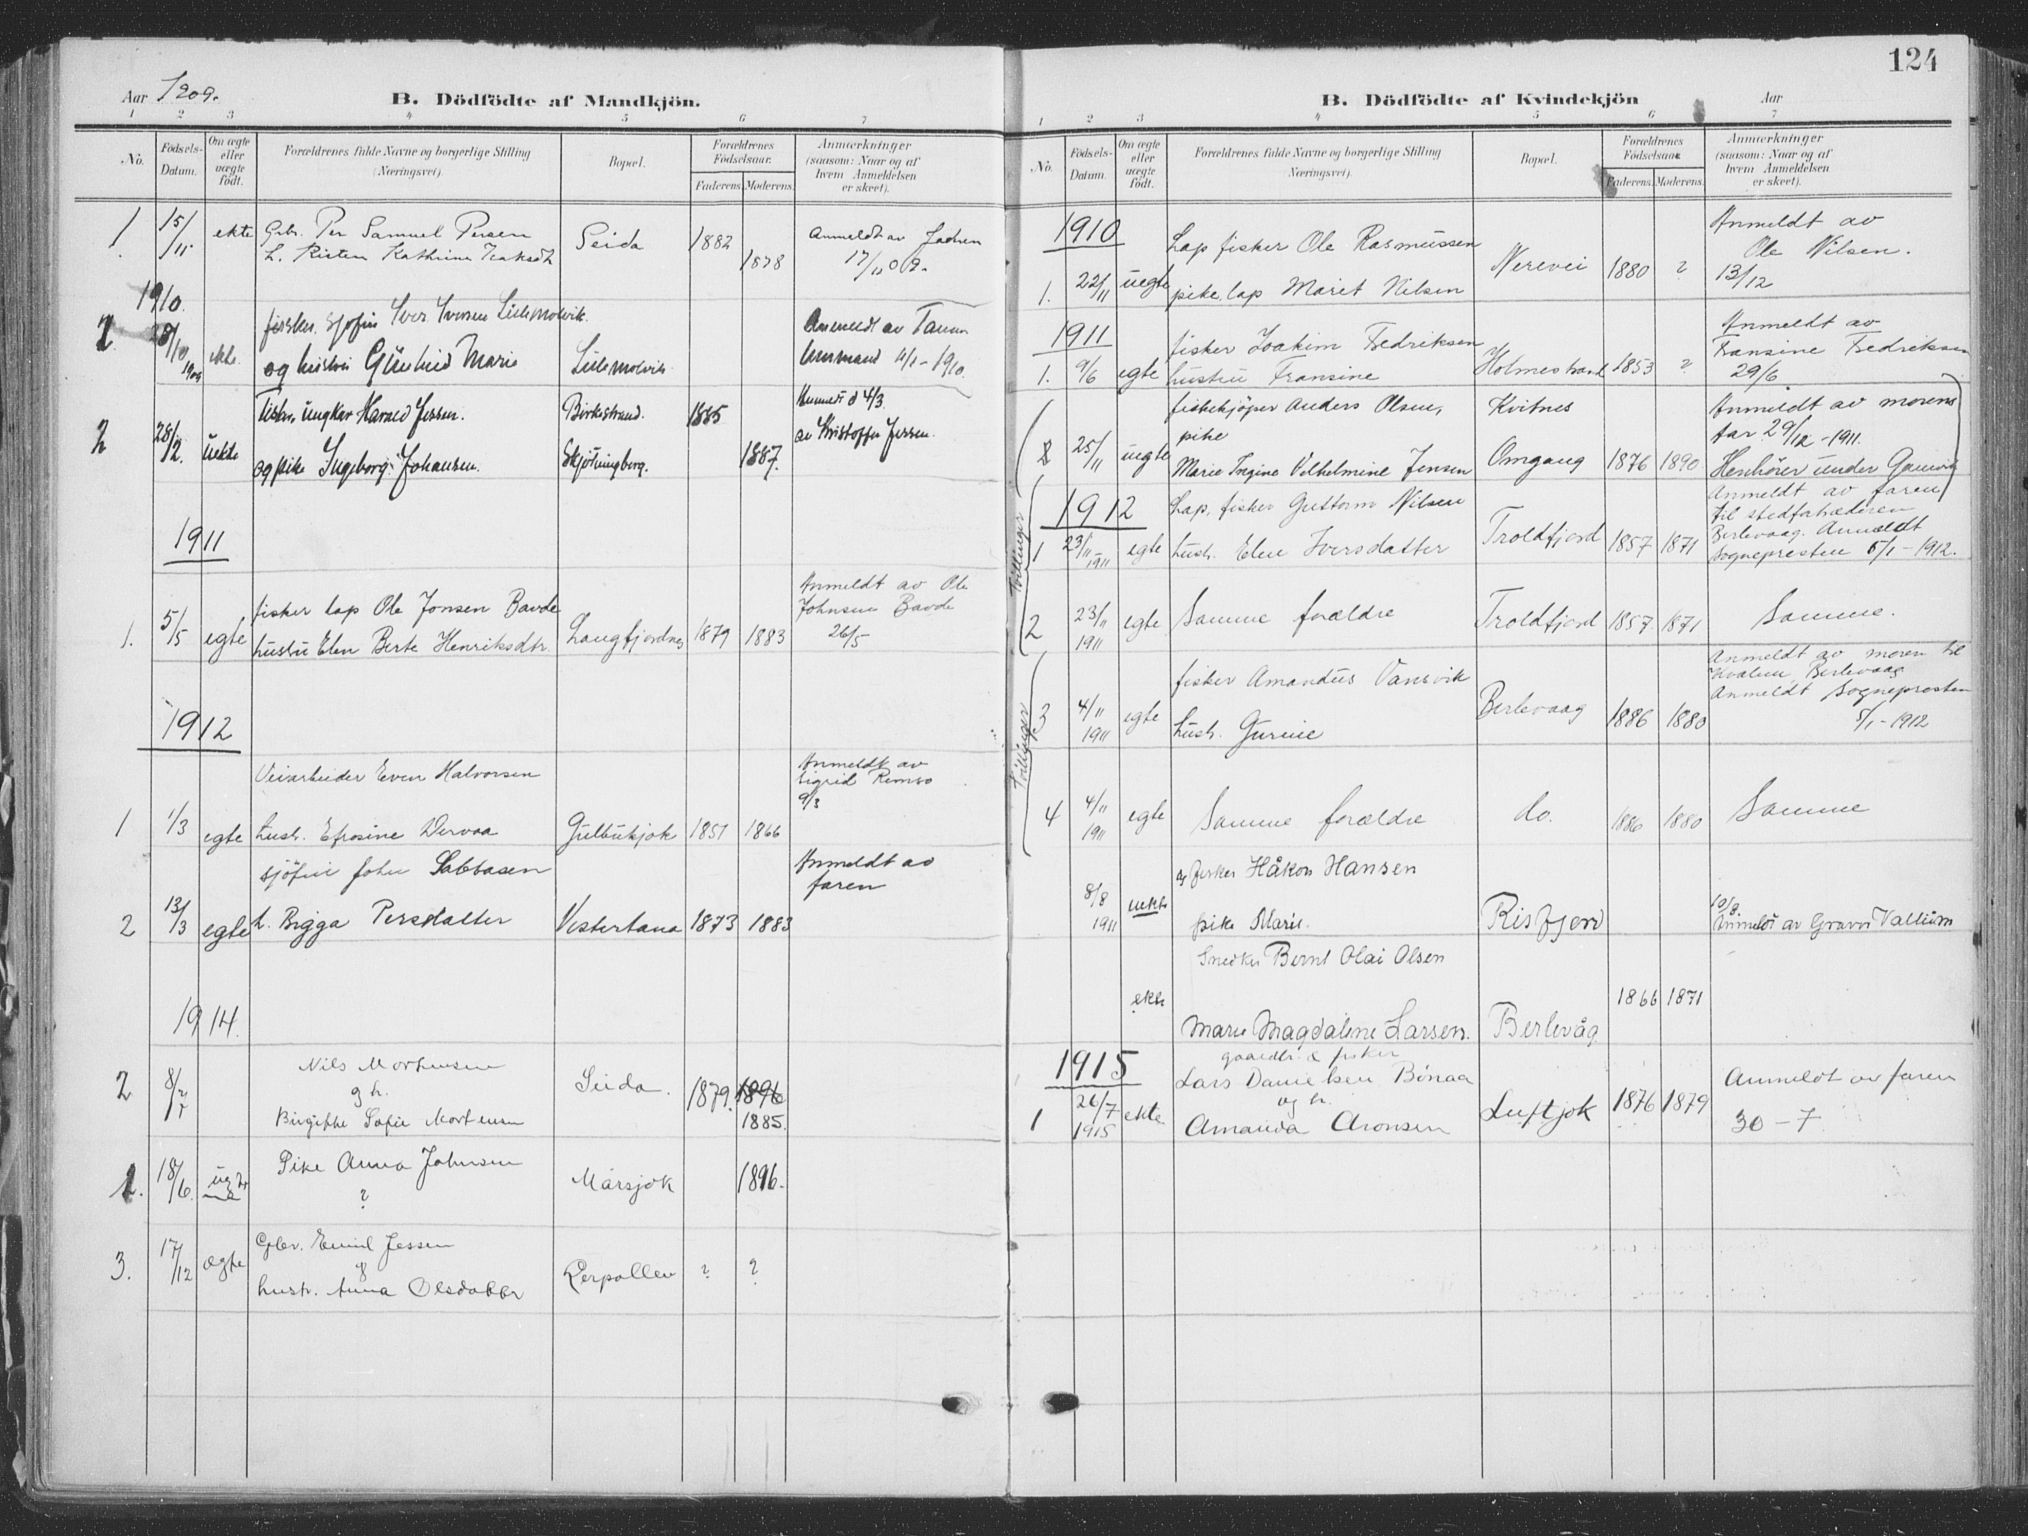 Aar 1909.
B. Dödfödte af Mandkjön.
1 2 3 4 5 6 7
No.
Födsels-Datum.
Om ægte eller uægte födt.
Forældrenes fulde Navne og borgerlige Stilling
(Næringsvei).
Bopæl.
Forældrenes Födselsaar.
Faderens. Moderens.
Anmærkninger
(saasom: Naar og af
hvem Anmeldelsen
er skeet).
1 15/11 ekte Grbr. Per Samuel Persen Seida 1882
h. Kirsten Kathrine 1878
Anmeldt av
17/11 09.
1910.
fisker, sjøfin Iver Iversen Lillemolvik
28/10 1909 ekte og hustru Gunhild Marie Lillemolvik
Anmeldt av Tanum
4/1 - 1910.
2 28/2. uekte ungkar Harald Jessen. Birkestrand. 1885
og pike Ingeborg Johansen. Skjötningberg. 1887.
Anmeldt 4/3.
av Kristoffer Jessen.
1911
fisker lap Ole Jonsen Bavde
1. 5/5 egte hustru Elen Berte Henriksdtr. Langfjordnes 1879 1883
Anmeldt av Ole
Johnsen Bavde
26/5
1912
Veiarbeider Even Halvorsen
1 1/3 egte hustr. Efrosine Dervaa Gulbukjok 1851 1866
Anmeldt av
Sigrid
9/3
sjöfin John Sabbasen
2 13/3 egte h. Bigga Persdatter Vestertana 1873 1883
Anmeldt av
faren
1914.
Nils Mortensen
2 8/7 g h. Seida. 1879. 1896
Birgitte Sofie Mortensen 1885.
Pike Anna Johnsen
1. 18/6. Måsjok 1896.
?
Gbr. Emil Jessen
3. 17/12 ægte & Lerpollen ? ?
hustr. Anna Olsdatter
124
B. Dödfödte af Kvindekjön
Aar
1 2 3 4 5 6 7
No.
Födsels-Datum.
Om ægte eller uægte födt.
Forældrenes fulde Navne og borgerlige Stilling
(Næringsvei).
Bopæl.
Forældrenes Födselsaar.
Faderens. Moderens.
Anmærkninger
(saasom: Naar og af
hvem Anmeldelsen
er skeet).
1910
Lap fisker Ole Rasmussen
1. 22/11 uegte pike, lap Marit Nilsen Nerevei 1880 ?
Anmeldt av
Ole Nilsen.
13/12
1911
fisker Joakim Fedriksen
1. 9/6 egte hustru Fransine Holmestrand 1853 ?
Anmeldt av
Fransine Fedriksen
29/6
fiskekjöper Anders Olsen, Kvitnes
pike
2 25/11 uegte Marie Regine Vilhelmine Jensen Omgang 1876 1890
Anmeldt av morens
far 29/12 - 1911.
Henhörer under Gamvig
Tvillinger
1912
Lap, fisker Guttorm Nilsen
1 23/11 1911 egte hustr. Elen Iversdatter Troldfjord 1857 1871
Anmeldt av faren
til stedfortræderen
Berlevaag. Anmeldt
Sognepresten 5/1 - 1912.
2 23/11 1911 egte Samme forældre Troldfjord 1857 1871 Samme.
Tvillinger
fisker Amandus Vansvik
3 4/11 1911 egte hustr. Gurine Berlevaag 1886 1880
Anmeldt av moren til
Berlevaag
Anmeldt Sognepresten
5/1 - 1912
4 4/11 1911 egte Samme forældre do. 1886 1880 Samme
fisker Håkon Hansen
8/8 1911 uekte pike Marie. Risfjord
10/8
Anmeldt av Vallium
Snedker Bernt Olai Olsen
ekte 1866 1871
Marie Magdalene Larsen. Berlevåg
1915
gaardbr. & fisker
Lars Danielsen Bonaa
og h.
1 26/7 1915 ekte Amanda Aronsen Luftjok 1876 1879
Anmeldt av faren
30 - 7